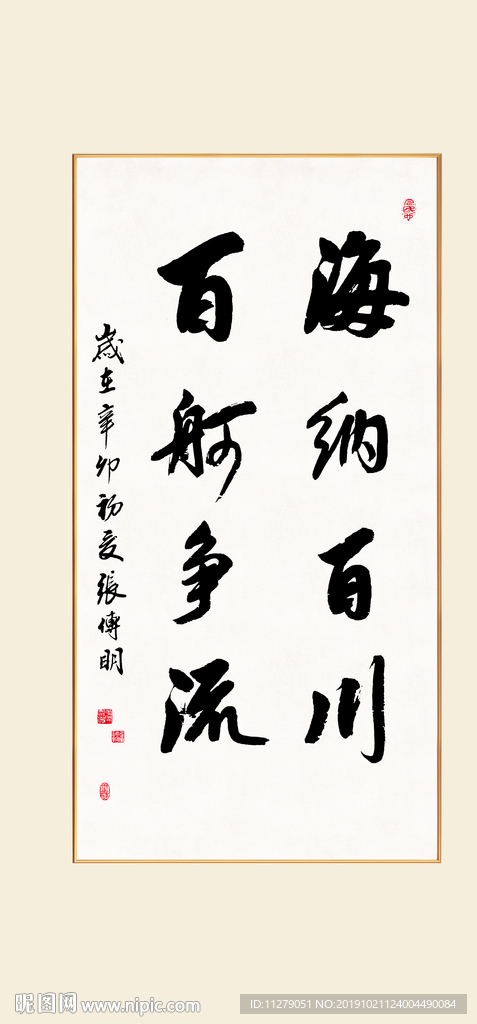 海纳百川
百舸争流
歲在辛卯初夏張傳明
昵图网 www.nipic.com
ID:11279051 NO:20191021124004490084